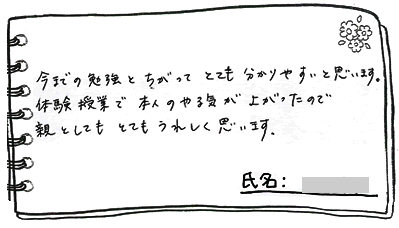 今までの勉強とちがって とても 分かりやすいと思います。
体験授業で 本人のやる気が 上がったので
親としても とても うれしく 思います。
氏名：